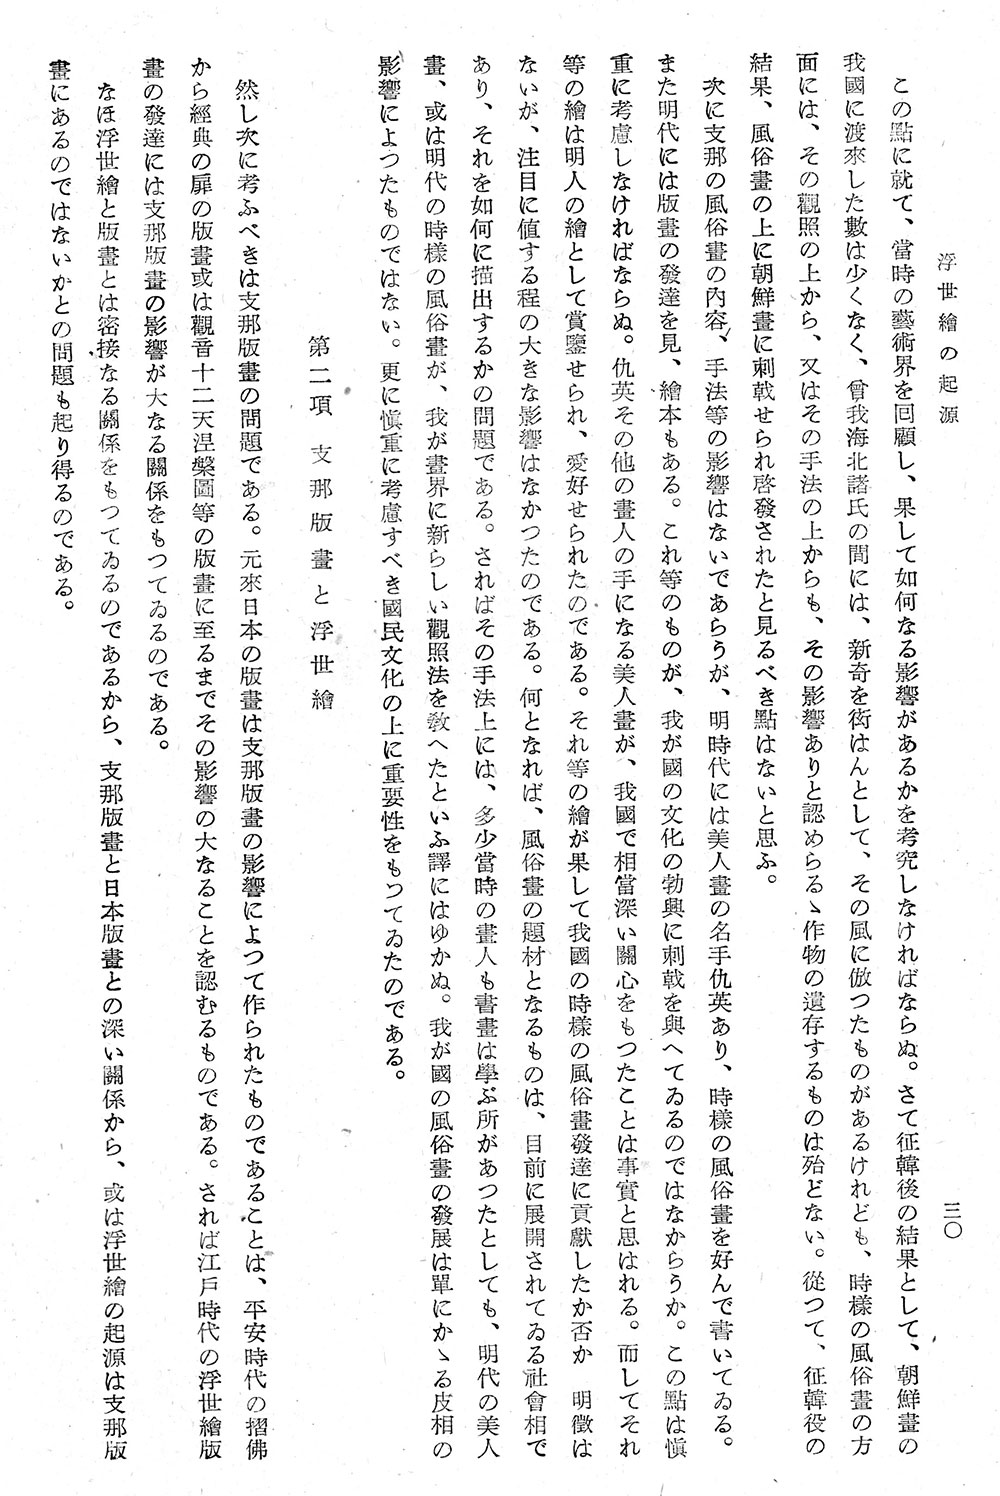 浮世繪の起源
三〇
この點に就て、當時の藝術界を回顧し、果して如何なる影響があるかを考究しなければならぬ。さて征韓後の結果として、朝鮮畫の
我國に渡來した數は少くなく、曾我海北諸氏の間には、新奇を衒はんとして、その風に倣つたものがあるけれども、時樣の風俗畫の方
面には、その觀照の上から、又はその手法の上からも、その影響ありと認めらるゝ作物の遺存するものは殆どない。從つて、征韓役の
結果、風俗畫の上に朝鮮畫に刺戟せられ啓發されたと見るべき點はないと思ふ。
次に支那の風俗畫の內容、手法等の影響はないであらうが、明時代には美人畫の名手仇英あり、時樣の風俗畫を好んで書いてゐる。
また明代には版畫の發達を見、繪本もある。これ等のものが、我が國の文化の勃興に刺戟を與へてゐるのではなからうか。この點は愼
重に考慮しなければならぬ。仇英その他の畫人の手になる美人畫が、我國で相當深い關心をもつたことは事實と思はれる。而してそれ
等の繪は明人の繪として賞鑒せられ、愛好せられたのである。それ等の繪が果して我國の時樣の風俗畫發達に貢獻したか否か　明徵は
ないが、注目に値する程の大きな影響はなかつたのである。何となれば、風俗畫の題材となるものは、目前に展開されてゐる社會相で
あり、それを如何に描出するかの問題である。さればその手法上には、多少當時の畫人も書畫は學ぶ所があつたとしても、明代の美人
畫、或は明代の時樣の風俗畫が、我が畫界に新らしい觀照法を敎へたといふ譯にはゆかぬ。我が國の風俗畫の發展は單にかゝる皮相の
影響によつたものではない。更に愼重に考慮すべき國民文化の上に重要性をもつてゐたのである。
第二項　支那版畫と浮世繪
然し次に考ふべきは支那版畫の問題である。元來日本の版畫は支那版畫の影響によつて作られたものであることは、平安時代の摺佛
から經典の扉の版畫或は觀音十二天涅槃圖等の版畫に至るまでその影響の大なることを認むるものである。されば江戶時代の浮世繪版
畫の發達には支那版畫の影響が大なる關係をもつてゐるのである。
なほ浮世繪と版畫とは密接なる關係をもつてゐるのであるから、支那版畫と日本版畫との深い關係から、或は浮世繪の起源は支那版
畫にあるのではないかとの問題も起り得るのである。